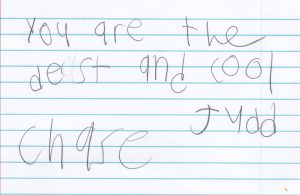 You are the
deast and cool
Judd
Chase